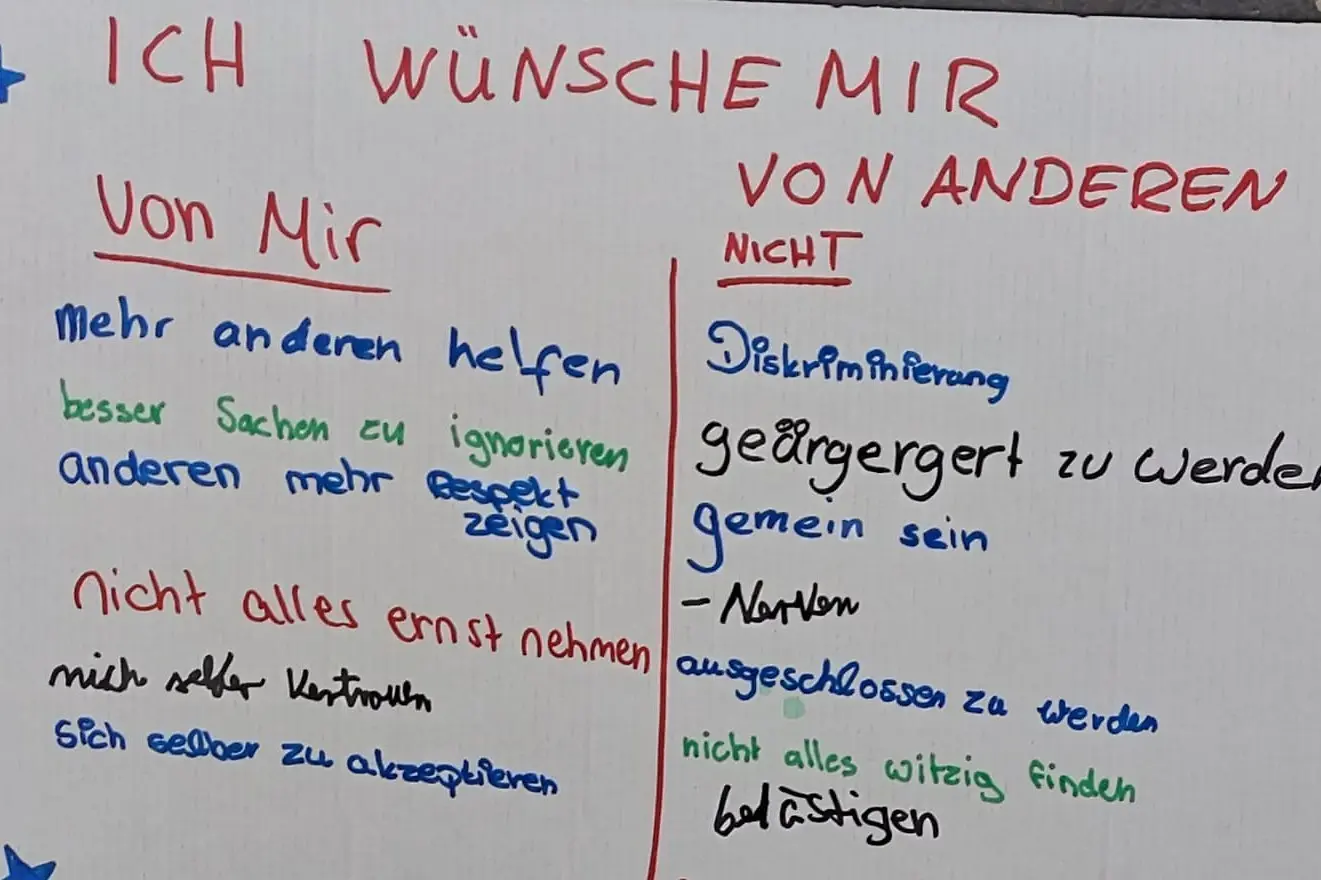 ICH WÜNSCHE MIR
Von Mir
mehr anderen helfen
besser Sachen zu ignorieren
anderen mehr Respekt
zeigen
nicht alles ernst nehmen
mich selber Vertrauen
sich selber zu akzeptieren
VON ANDEREN
NICHT
Diskriminierung
geärgergert zu werden
gemein sein
- Nerven
ausgeschlossen zu werden
nicht alles witzig finden
belästigen